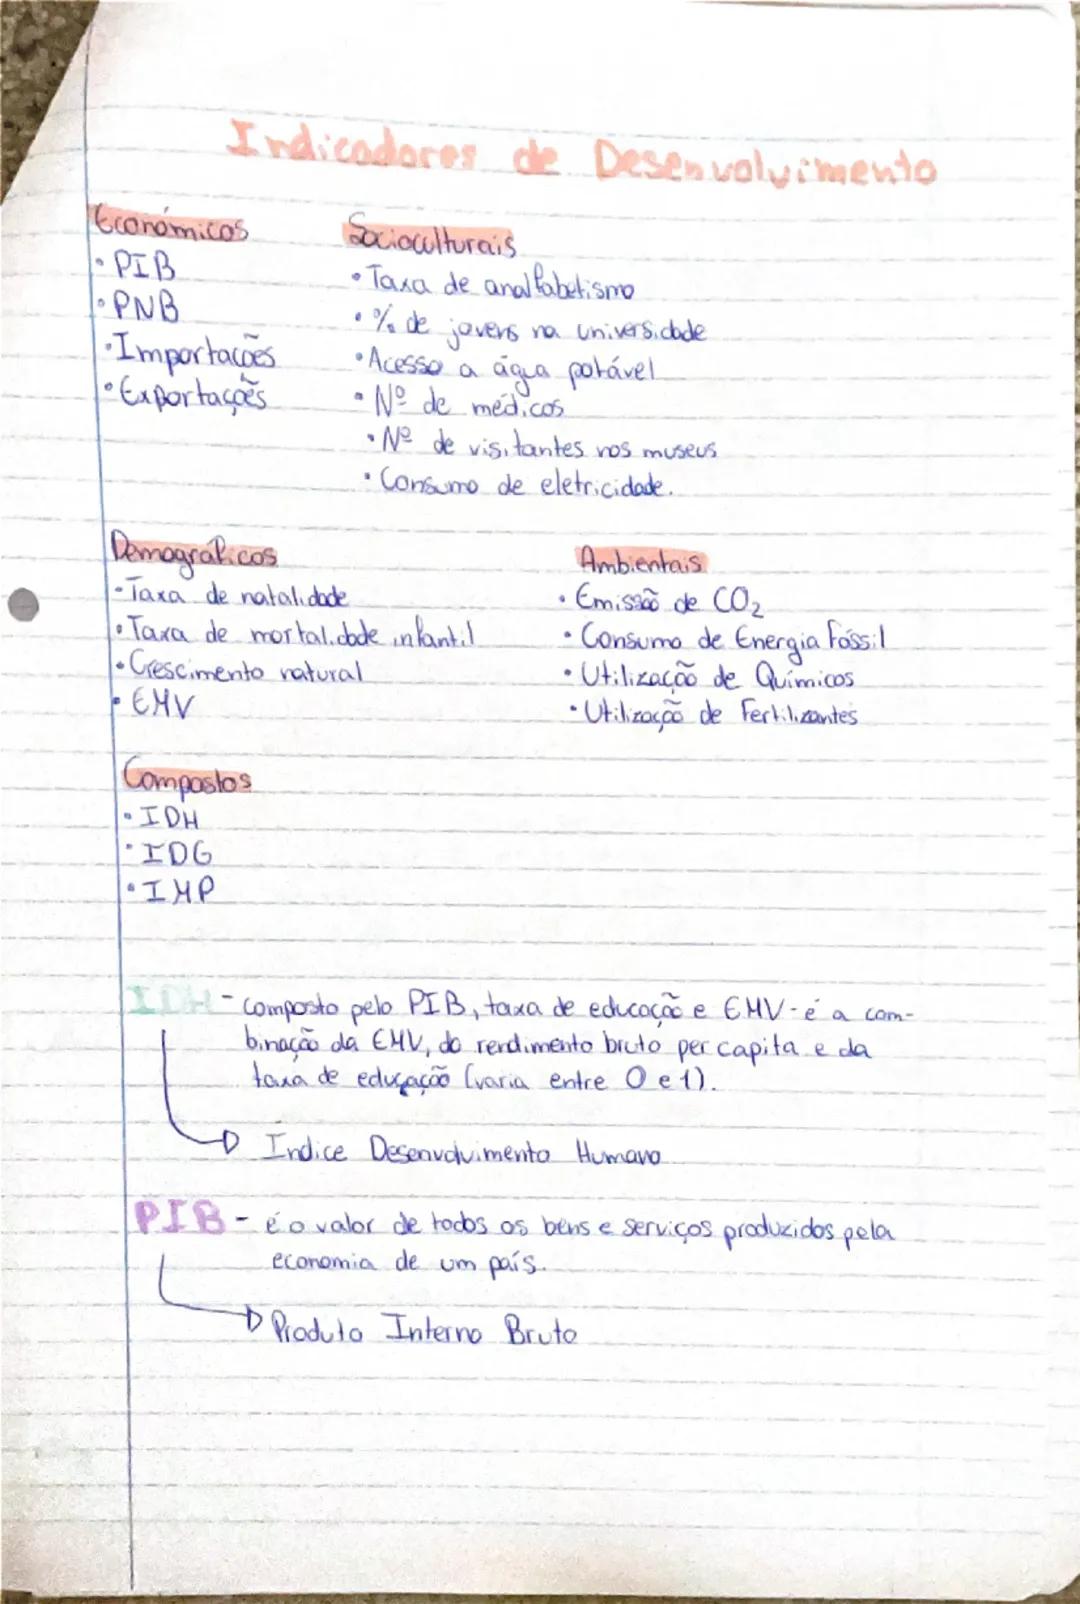 Indicadores de Desenvolvimento
Económicos
• PIB
• PNB
• Importações
• Exportações
Socioculturais
• Taxa de analfabetismo
• % de jovens na universidade
• Acesso a água potável
• Nº de médicos
• Nº de visitantes nos museus
• Consumo de eletricidade.
Demográficos
• Taxa de natalidade
• Taxa de mortalidade infantil
• Crescimento natural
• EMV
Ambientais
• Emissão de CO2
• Consumo de Energia Fóssil
• Utilização de Químicos
• Utilização de Fertilizantes
Compostos
• IDH
• IDG
• IMP
IDH - composto pelo PIB, taxa de educação e EMV - é a com-
binação da EMV, do rendimento bruto per capita e da
taxa de educação (varia entre 0 e 1).
Indice Desenvolvimento Humano
PIB - é o valor de todos os bens e serviços produzidos pela
economia de um país.
Produto Interno Bruto